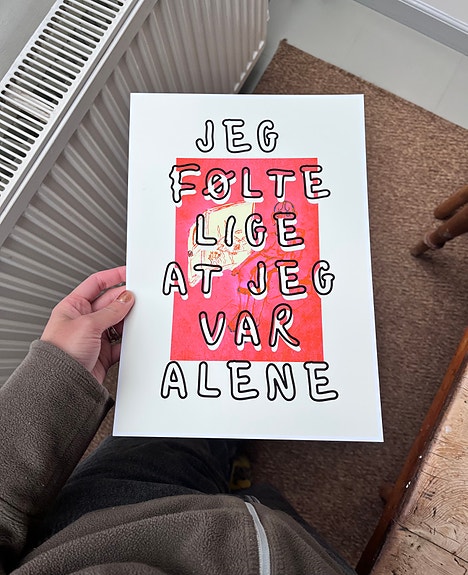 JEG
FØLTE
LIGE
AT JEG
VAR
ALENE